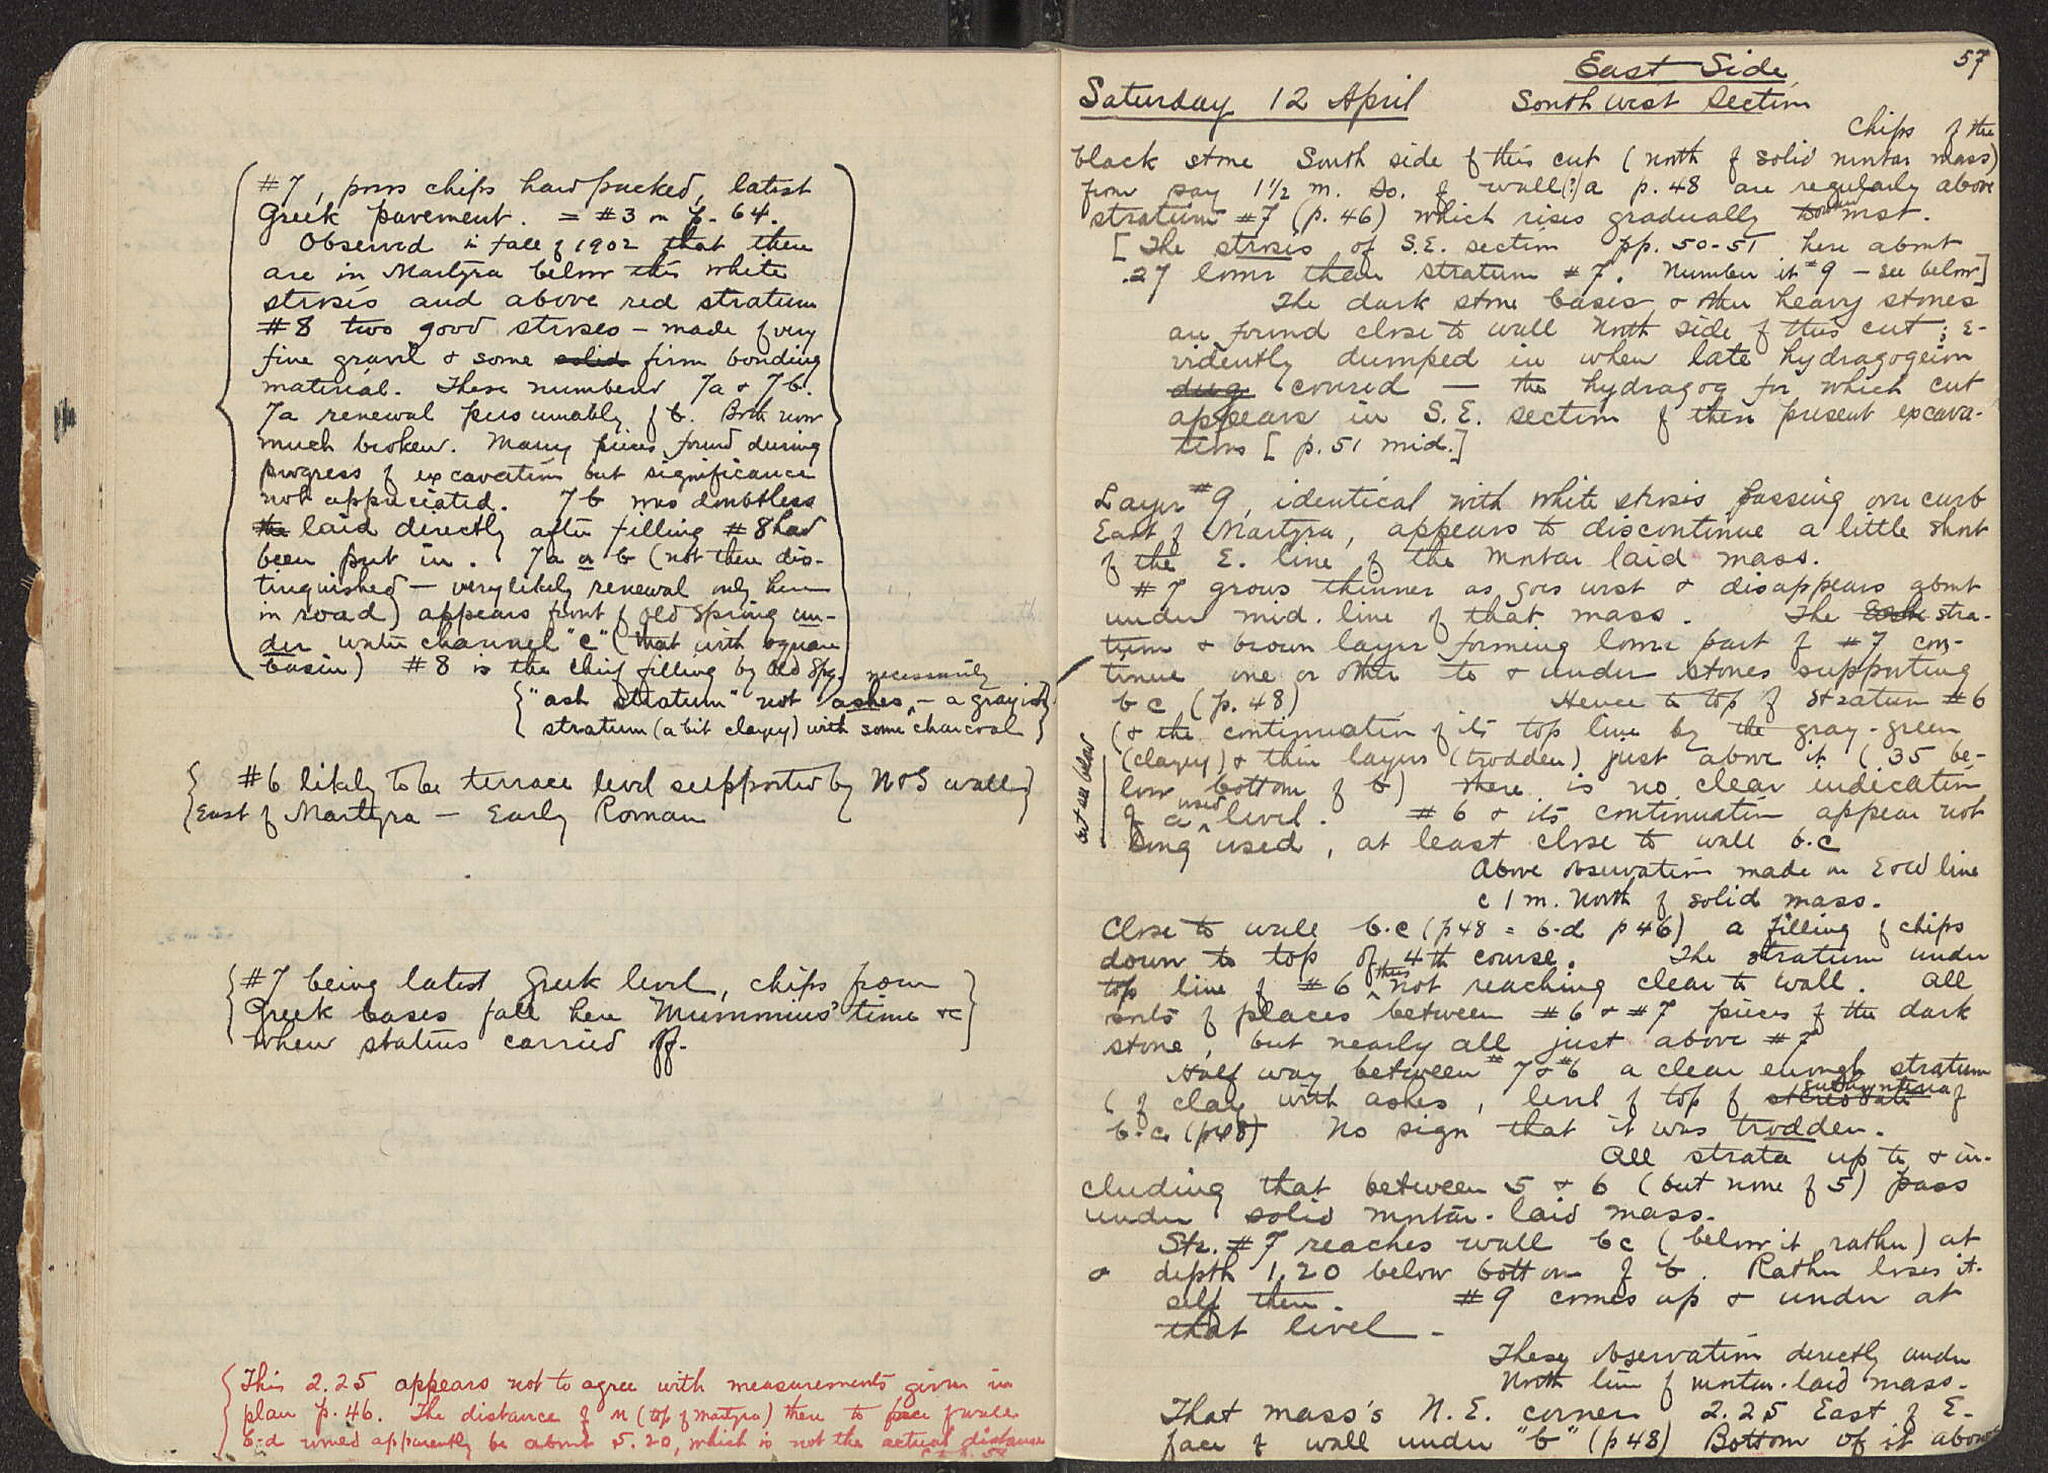 #7, poros chips hard packed, latest
Greek pavement. = #3 on p. 64.
Observed in fall of 1902 that there
are in Martyra below this white
strosis and above red stratum
#8 two good stroses – made of very
fine gravel & some solid firm bonding
material. These numbered 7a & 7b.
7a renewal presumably of b. Both now
much broken. Many pieces found during
progress of excavation but significance
not appreciated. 7b was doubtless
the laid directly after filling #8 had
been put in. 7a or b (not then dis-
tinguished – very likely renewal only here
in road) appears front of Old Spring un-
der water channel "c" (that with square
basin) #8 is the chief filling by Old Spg.
necessarily
"ash stratum" not ashes, – a grayish
stratum (a bit clayey) with some charcoal
#6 likely to be terrace level supported by N & S wall
East of Martyra – Early Roman
#7 being latest Greek level, chips from
Greek bases fall here Mummius' time &c
when statues carried off.
This 2.25 appears not to agree with measurements given in
plan p. 46. The distance of n (top of martyra) then to face of wall
b-d would apparently be about 5.20, which is not the actual distance
57
East Side
Saturday 12 April South west Section
Chips of the
black stone South side of this cut (north of solid mortar mass)
from say 1 1/2 m. So. of wall(?) a p. 48 are regularly above
stratum #7 (p. 46) which rises gradually toward west.
[The strosis of S.E. section pp. 50-51 here about
.27 lower than stratum #7. Number it #9 – see below]
The dark stone bases & other heavy stones
are found close to wall North side of this cut; e-
vidently dumped in when late hydragogeion
dug covered – the hydragog for which cut
appears in S.E. section of then present excava-
tions [p. 51 mid.]
Layer #9, identical with white strosis passing over curb
East of Martyra, appears to discontinue a little short
of the E. line of the mortar laid mass.
#7 grows thinner as goes west & disappears about
under mid. line of that mass. The stra-
tum & brown layer forming lower part of #7 con-
tinue one or other to & under stones supporting
b c (p. 48) Hence to top of stratum #6
(& the continuation of its top line by the gray-green
(clayey) & thin layers (trodden) just above it (.35 be-
low bottom of b) there is no clear indication
of a used level. #6 & its continuation appear not
long used, at least close to wall b.c
but see below
Above observation made on E & W line
c 1 m. North of solid mass.
Close to wall b.c (p 48 = b-d p 46) a filling of chips
down to top of 4th course. The stratum under
top line of #6 thus not reaching clear to wall. All
sorts of places between #6 & #7 pieces of the dark
stone, but nearly all just above #7
Half way between #7 & #6 a clear enough stratum
(of clay with ashes, level of top of euthynteria of
b.c. (p 48) No sign that it was trodden.
All strata up to & in-
cluding that between 5 & 6 (but none of 5) pass
under solid mortar-laid mass.
Str. #7 reaches wall bc (below it rather) at
a depth 1.20 below bottom of b. Rather loses it-
self then. #9 comes up & under at
that level –
These observation directly under
North line of mortar-laid mass.
That mass's N.E. corner 2.25 East of E-
face of wall under "b" (p 48) Bottom of it about